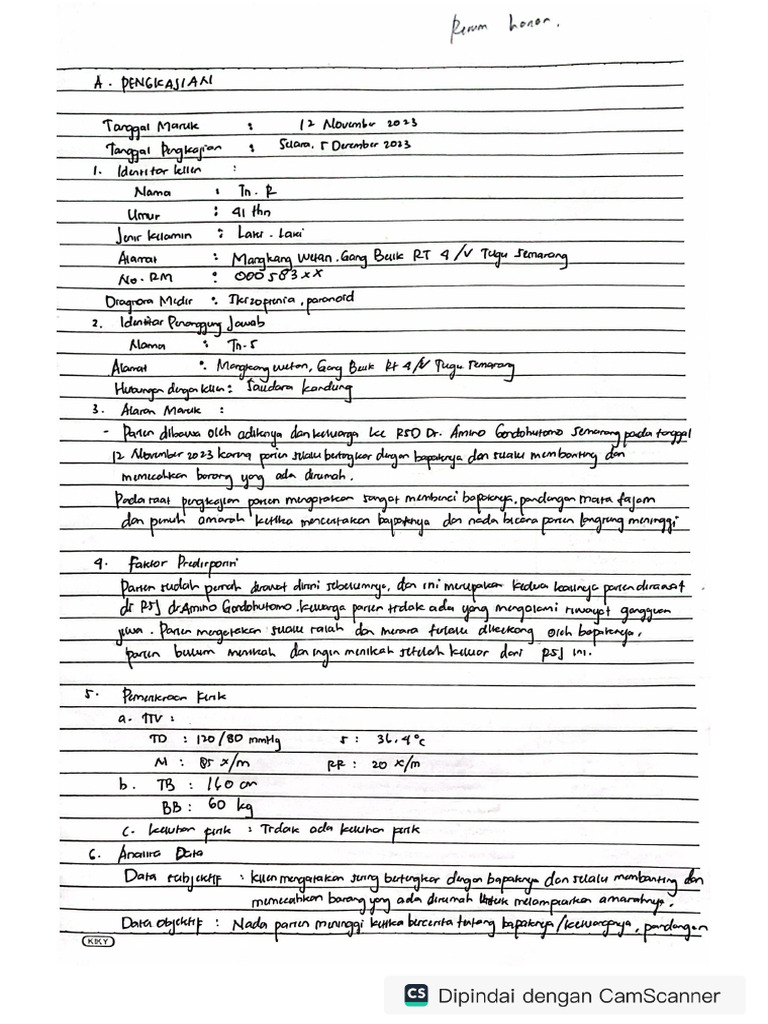 A. PENGKAJIAN
Tanggal Masuk : 12 November 2023
Tanggal Pengkajian : Selasa, 5 Desember 2023
1. Identitas klien :
Nama : Tn. R
Umur : 41 thn
Jenis Kelamin : Laki-Laki
Alamat : Mangkang Wetan, Gang Buik RT 4/V Tugu Semarang
No. RM : 000583xx
Diagnosa Medis : Skizoprenia, paranoid
2. Identitas Penanggung Jawab
Nama : Tn. S
Alamat : Mangkang wetan, Gang Buik Rt 4/V Tugu Semarang
Hubungan dengan klien : Saudara kandung
3. Alasan Masuk :
- Pasien dibawa oleh adiknya dan keluarga ke RSD Dr. Amino Gondohutomo Semarang pada tanggal
12 November 2023 karena pasien selalu bertengkar dengan bapaknya dan selalu membanting dan
memecahkan barang yang ada dirumah.
Pada saat pengkajian pasien mengatakan sangat membenci bapaknya, pandangan mata tajam
dan penuh amarah ketika menceritakan bapaknya dan nada bicara pasien langsung meninggi
4. Faktor Predisposisi
Pasien sudah pernah dirawat disini sebelumnya, dan ini merupakan kedua kalinya pasien dirawat
di RSJ dr Amino Gondohutomo. keluarga pasien tidak ada yang mengalami riwayat gangguan
jiwa. Pasien mengatakan selalu salah dan merasa terlalu dikekang oleh bapaknya,
pasien belum menikah dan ingin menikah setelah keluar dari RSJ ini.
5. Pemeriksaan fisik
a. TTV :
TD : 120/80 mmHg S : 36,4°c
N : 85 x/m RR : 20 x/m
b. TB : 160 cm
BB : 60 kg
c. keluhan fisik : Tidak ada keluhan fisik
6. Analisa Data
Data subjektif : klien mengatakan sering bertengkar dengan bapaknya dan selalu membanting dan
memecahkan barang yang ada dirumah untuk melampiaskan amarahnya.
Data objektif : Nada pasien meninggi ketika bercerita tentang bapaknya/keluarganya, pandangan
KIKY
CS Dipindai dengan CamScanner